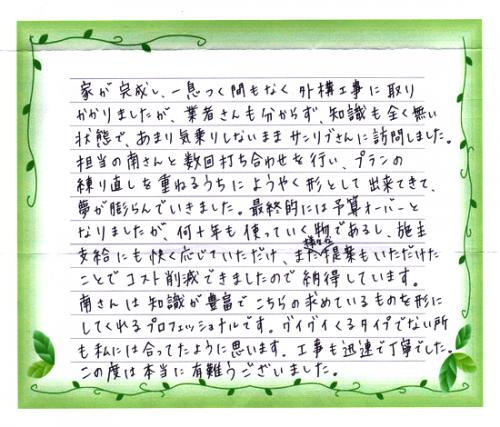 家が完成し、一息つく間もなく外構工事に取り
かかりましたが、業者さんも分からず、知識も全く無い
状態で、あまり気乗りしないままサンリブさんに訪問しました。
担当の南さんと数回打ち合わせを行い、プランの
練り直しを重ねるうちにようやく形として出来てきて、
夢が膨らんでいきました。最終的には予算オーバーと
なりましたが、何十年も使っていく物であるし、施主
支給にも快く応じていただけ、また様々な提案もいただけた
ことでコスト削減できましたので納得しています。
南さんは知識が豊富でこちらの求めているものを形に
してくれるプロフェッショナルです。グイグイくるタイプでない所
も私には合ってたように思います。工事も迅速で丁寧でした。
この度は本当に有難うございました。